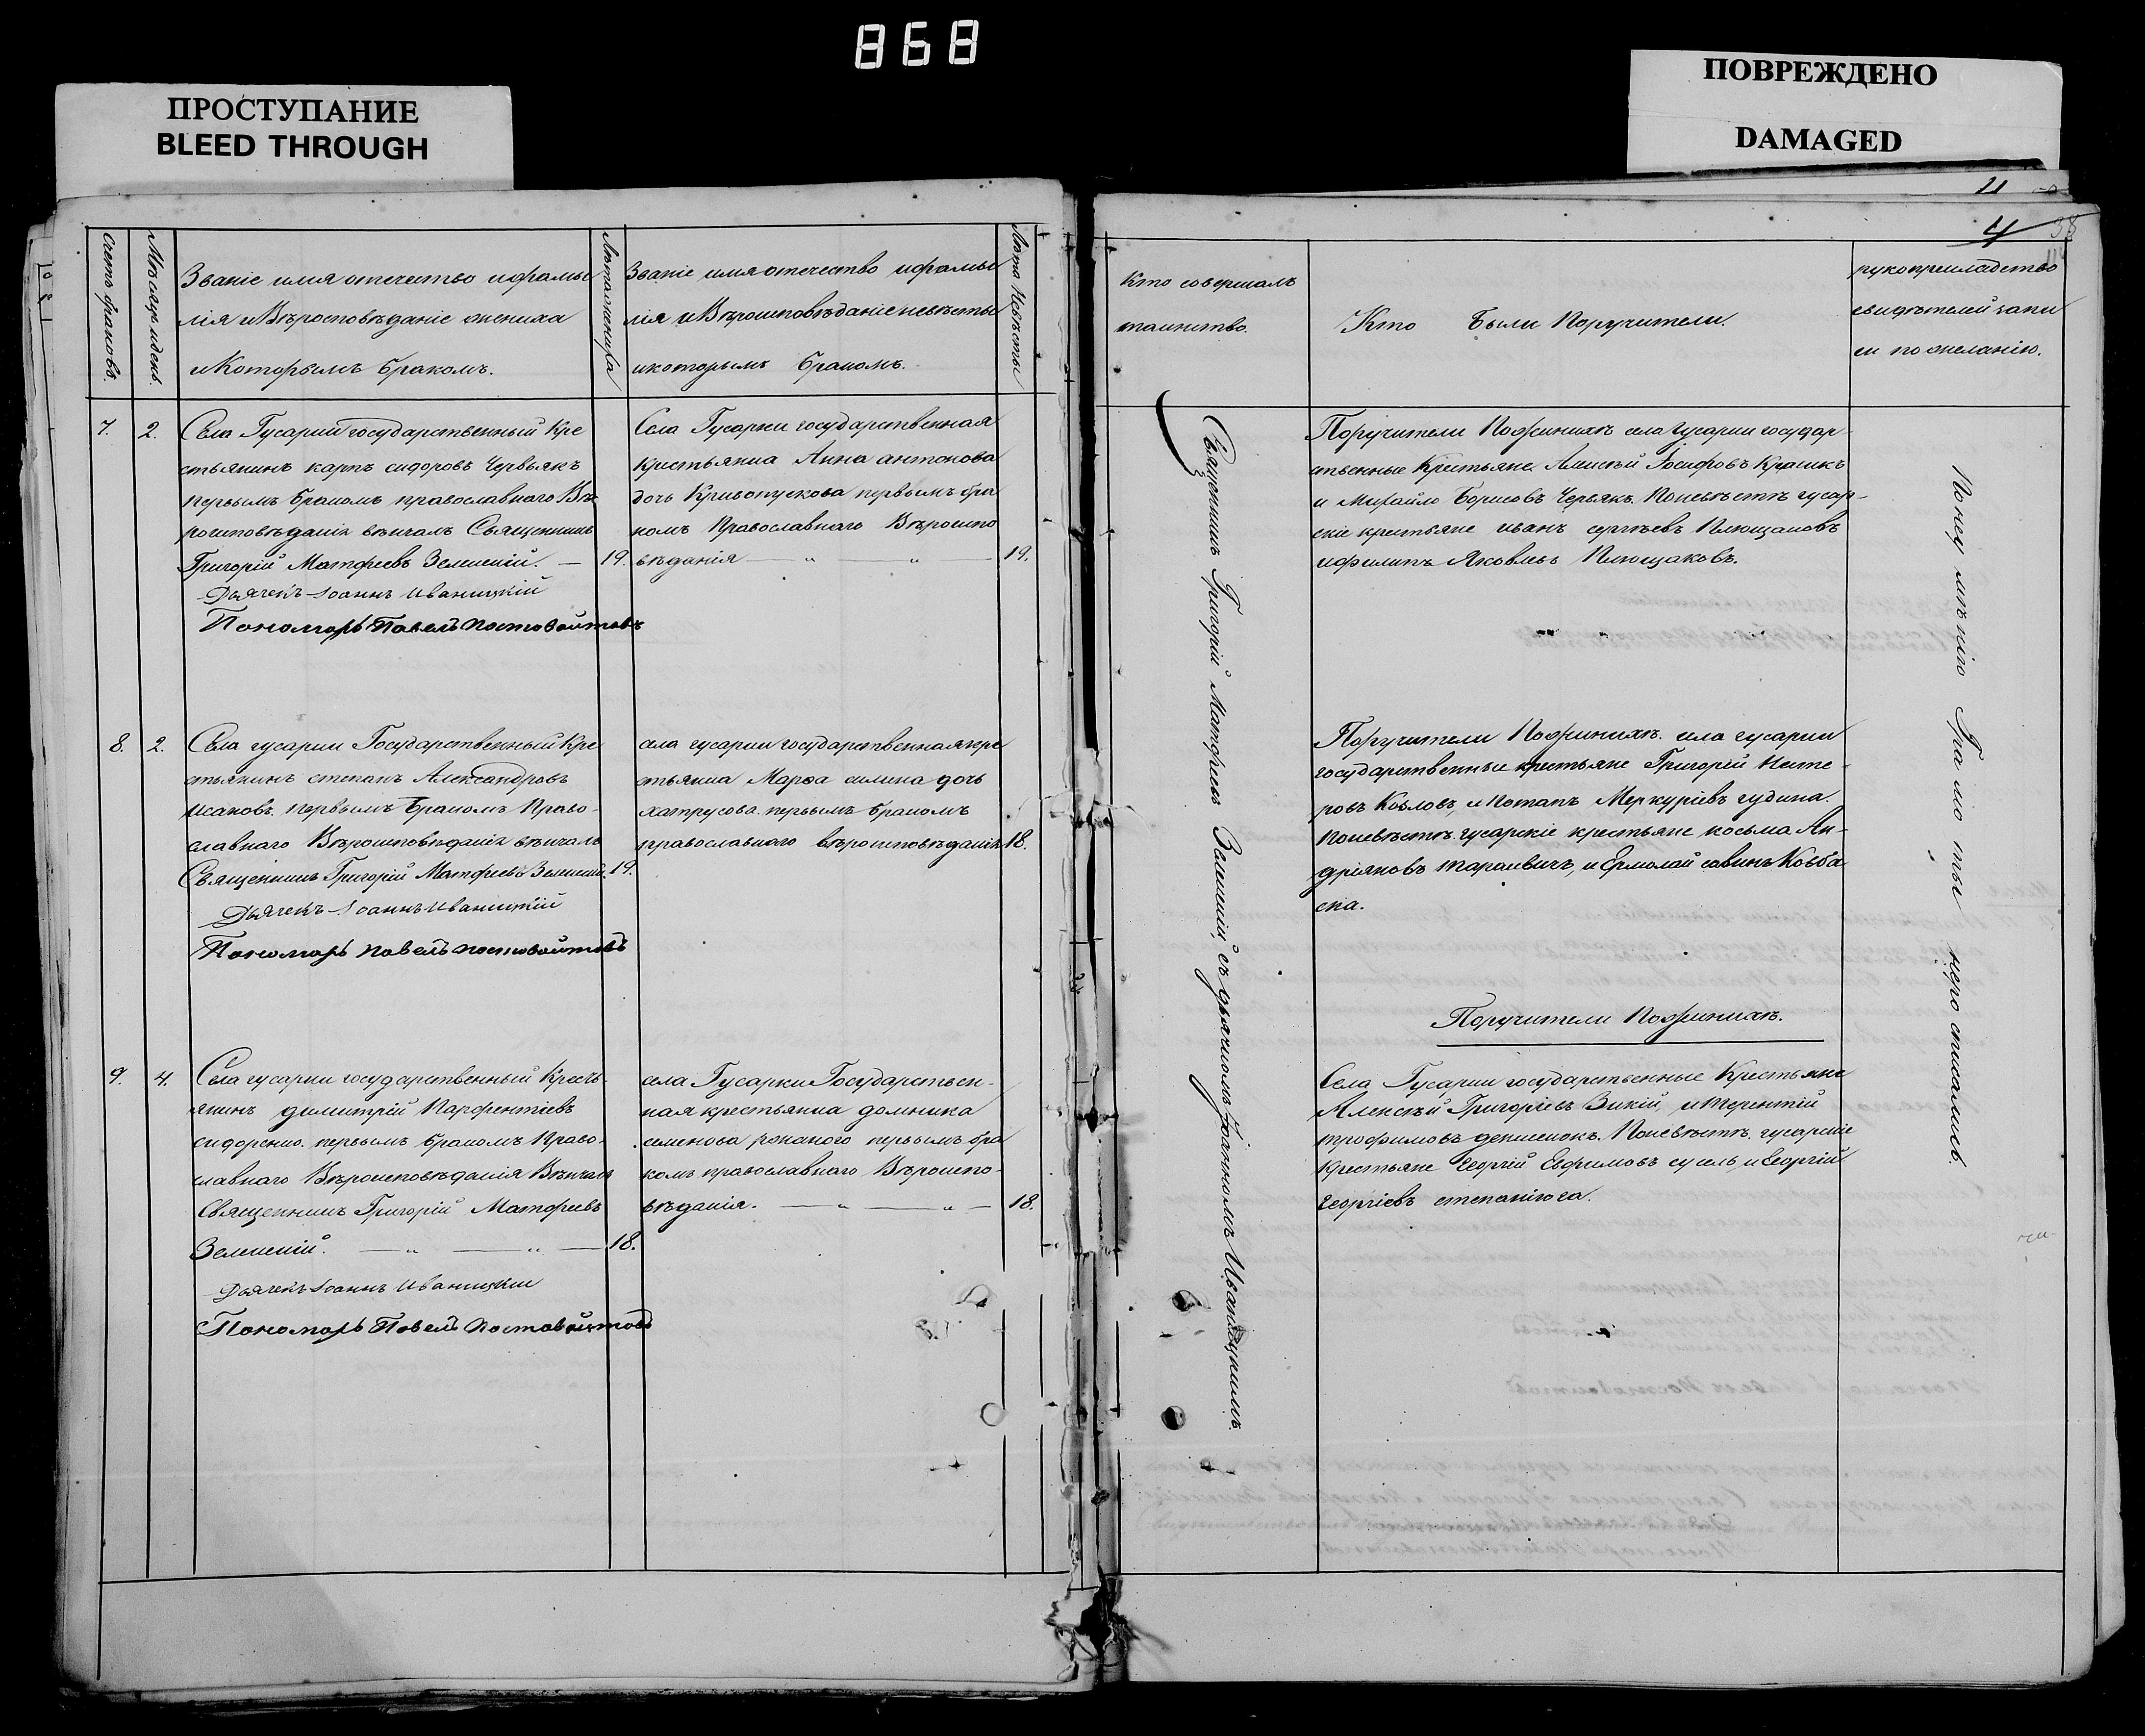 868
ПРОСТУПАНИЕ
BLEED THROUGH
ПОВРЕЖДЕНО
DAMAGED
11
4
Счетъ браковъ.
Мѣсяцъ и день.
Званіе имя отечество и фами
лія и Вѣроисповѣданіе жениха
и Которымъ бракомъ.
Лѣта жениха
Званіе имя отечество и фами
лія и Вѣроисповѣданіе невѣсты
и которымъ бракомъ.
Лѣта Невѣсты
7.
2.
Села Гусарки государственный Кре
стьянинъ карпъ сидоровъ Червякъ
первымъ бракомъ православнаго Вѣ
роисповѣданія вѣнчалъ Священникъ
Григорій Матфеевъ Зеленскій. —
19.
Дьячекъ Іоаннъ Иваницкій
Пономарь Павелъ Постовойтовъ
Села Гусарки государственная
крестьянка Анна антонова
дочь Кривопускова первымъ бра
комъ Православнаго Вѣроиспо
вѣданія — „ — „ —
19.
8.
2.
Села гусарки Государственный Кре
стьянинъ степанъ Александровъ
Исаковъ. первымъ бракомъ Право-
славнаго Вѣроисповѣданія вѣнчалъ
Священникъ Григорій Матфеевъ Зеленскій.
19.
Дьячекъ Іоаннъ Иваницкій
Пономарь Павелъ Постовойтовъ
села гусарки государственная кре
стьянка Марѳа силина дочь
хатрусова. первымъ бракомъ
православнаго вѣроисповѣданія
18.
9.
4.
Села гусарки государственный Кресть-
янинъ димитрій Парфентіевъ
сидоренко. первымъ бракомъ Право-
славнаго Вѣроисповѣданія Вѣнчалъ
Священникъ Григорій Матфеевъ
Зеленскій. — „ — „ —
18.
Дьячекъ Іоаннъ Иваницкій
Пономарь Павелъ Постовойтовъ
села Гусарки Государствен-
ная крестьянка домника
семенова первымъ бра
комъ православнаго Вѣроиспо-
вѣданія. — „ — „ —
18.
Кто совершалъ
таинство.
Кто Были Поручители.
рукоприкладство
свидѣтелей запи
си по желанію.
Священникъ Григорій Матфеевъ Зеленскій, съ дьячкомъ Іоанномъ Иваницкимъ.
Поручители По Женихѣ села гусарки государ-
ственные Крестьяне Алексѣй Іосифовъ Красикъ
и Михайло Борисовъ Червякъ. По невѣстѣ гусар-
скіе крестьяне иванъ сергѣевъ Площаковъ
и филипъ Яковлевъ Площаковъ.
Поручители По Женихѣ. села гусарки
государственные крестьяне Григорій Несте-
ровъ Козловъ, и Потапъ Меркуріевъ гудина.
По невѣстѣ. гусарскіе крестьяне косьма Ан-
дріяновъ тарасевичъ, и Ермолай савинъ Ковба
ска.
Поручители По Женихѣ.
Села Гусарки государственные Крестьяне
Алексѣй Григоріевъ Дикій, и терентій
трофимовъ денисенокъ. По невѣстѣ. гусарскіе
крестьяне Георгій Евфимовъ сусль, и Георгій
Георгіевъ степанюга.
По неумѣнію Грамоты не росписались.